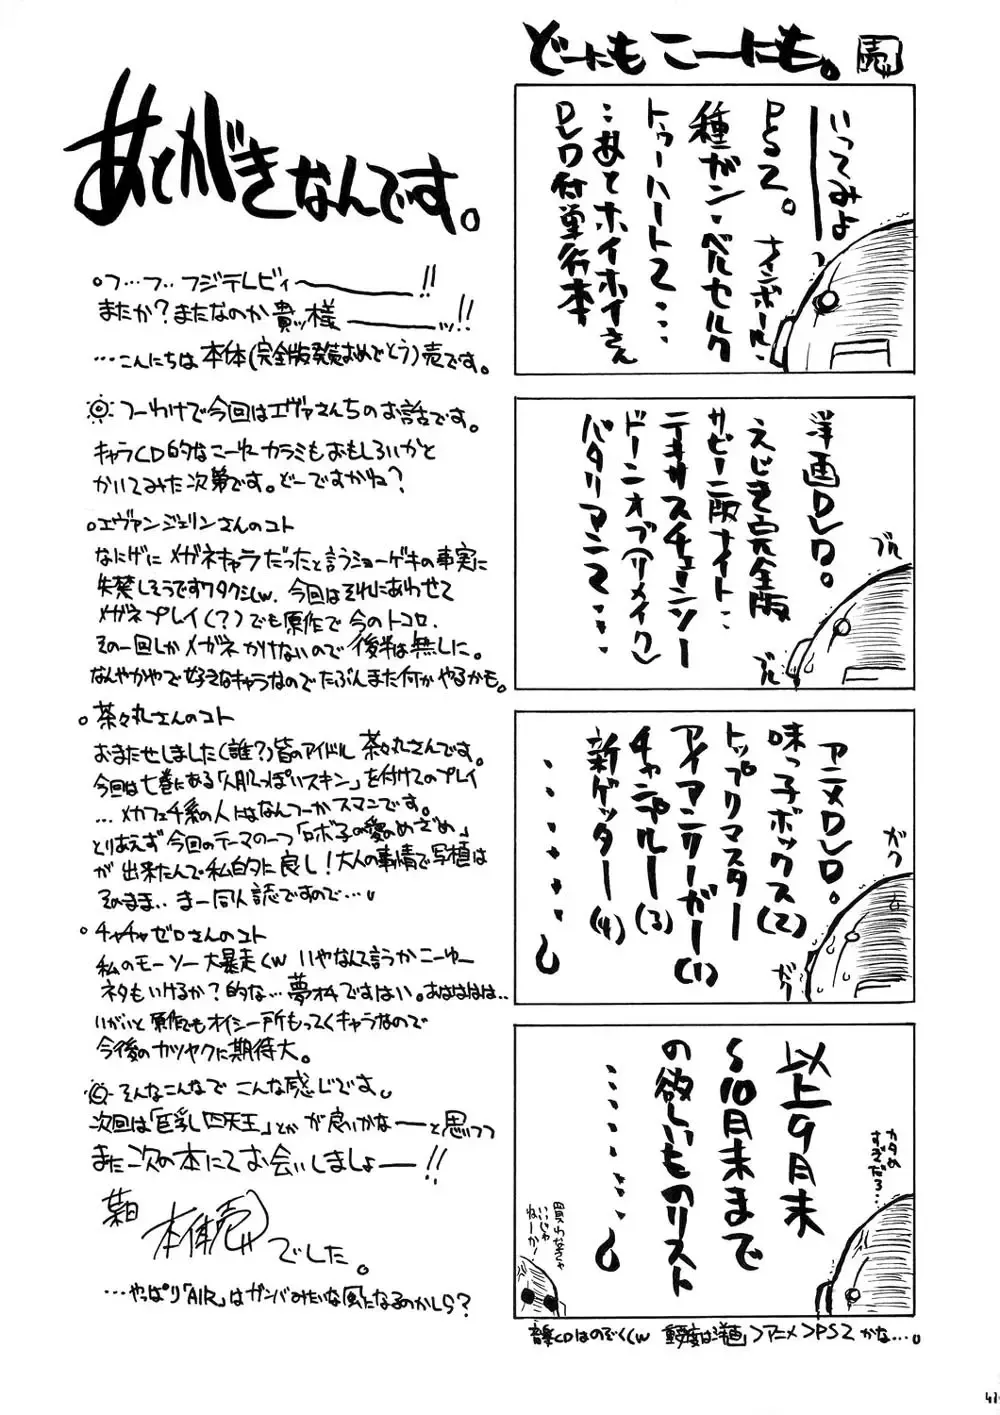 どーにもこーにも。売
いってみよ
PS2。ナインボール・
種ガン・ベルセルク
トゥーハート2・・・
：あとホイホイさん
DVD付単行本
洋画DVD。
えじき完全版
サビーニ版ナイト・・
テキサスチェーンソー
ドーンオブ(リメイク)
バタリアン2・・・
ブル
ブル
アニメDVD。
味っ子ボックス(2)
トップリマスター
アイアンリーガー(1)
チャンプルー(3)
新ゲッター(4)
ガク
ガク
以上9月末
〜10月末まで
の欲しいものリスト
カタめ
すぎだろ…
買わなきゃ
いいじゃ
ねーか!
音楽CDはのぞく(w 重要度は洋画>アニメ>PS2かな…。
あとがきなんです。
フ…フ‥フジテレビィ〜———!!
またか？またなのか貴ッ様———ッ!!
…こんにちは本体(完全版発売おめでとう)売です。
つーわけで今回はエヴァさんちのお話です。
キャラCD的なこーゆーカラミもおもしろいかと
かいてみた次第です。どーですかね？
エヴァンジェリンさんのコト
なにげにメガネキャラだったと言うショーゲキの事実に
失禁しそうですワタクシ(w. 今回はそれにあわせて
メガネプレイ(？)でも原作で今のトコロ、
その一回しかメガネかけないので後半は無しに。
なんやかやで好きなキャラなのでたぶんまた何かやるかも。
茶々丸さんのコト
おまたせしました(誰？)皆のアイドル茶々丸さんです。
今回は七巻にある「人肌っぽいスキン」を付けてのプレイ
…メカフェチ系の人にはなんつーかスマンです。
とりあえず今回のテーマの一つ「ロボ子の愛のめざめ」
が出来たんで私的に良し！大人の事情で写植は
そのまま‥まー同人誌ですので…。
チャチャゼロさんのコト
私のモーソー大暴走(w いやなんて言うかこーゆー
ネタもいけるか？的な…夢オチですはい。あはははは‥
いがいと原作でもオイシー所もってくキャラなので
今後のカツヤクに期待大。
そんなこんなでこんな感じです。
次回は「巨乳四天王」とかが良いかなーと思いつつ
また次の本にてお会いしましょー!!
本体売
でした。
…やっぱり「AIR」はガンバみたいな風になるのかしら？
41